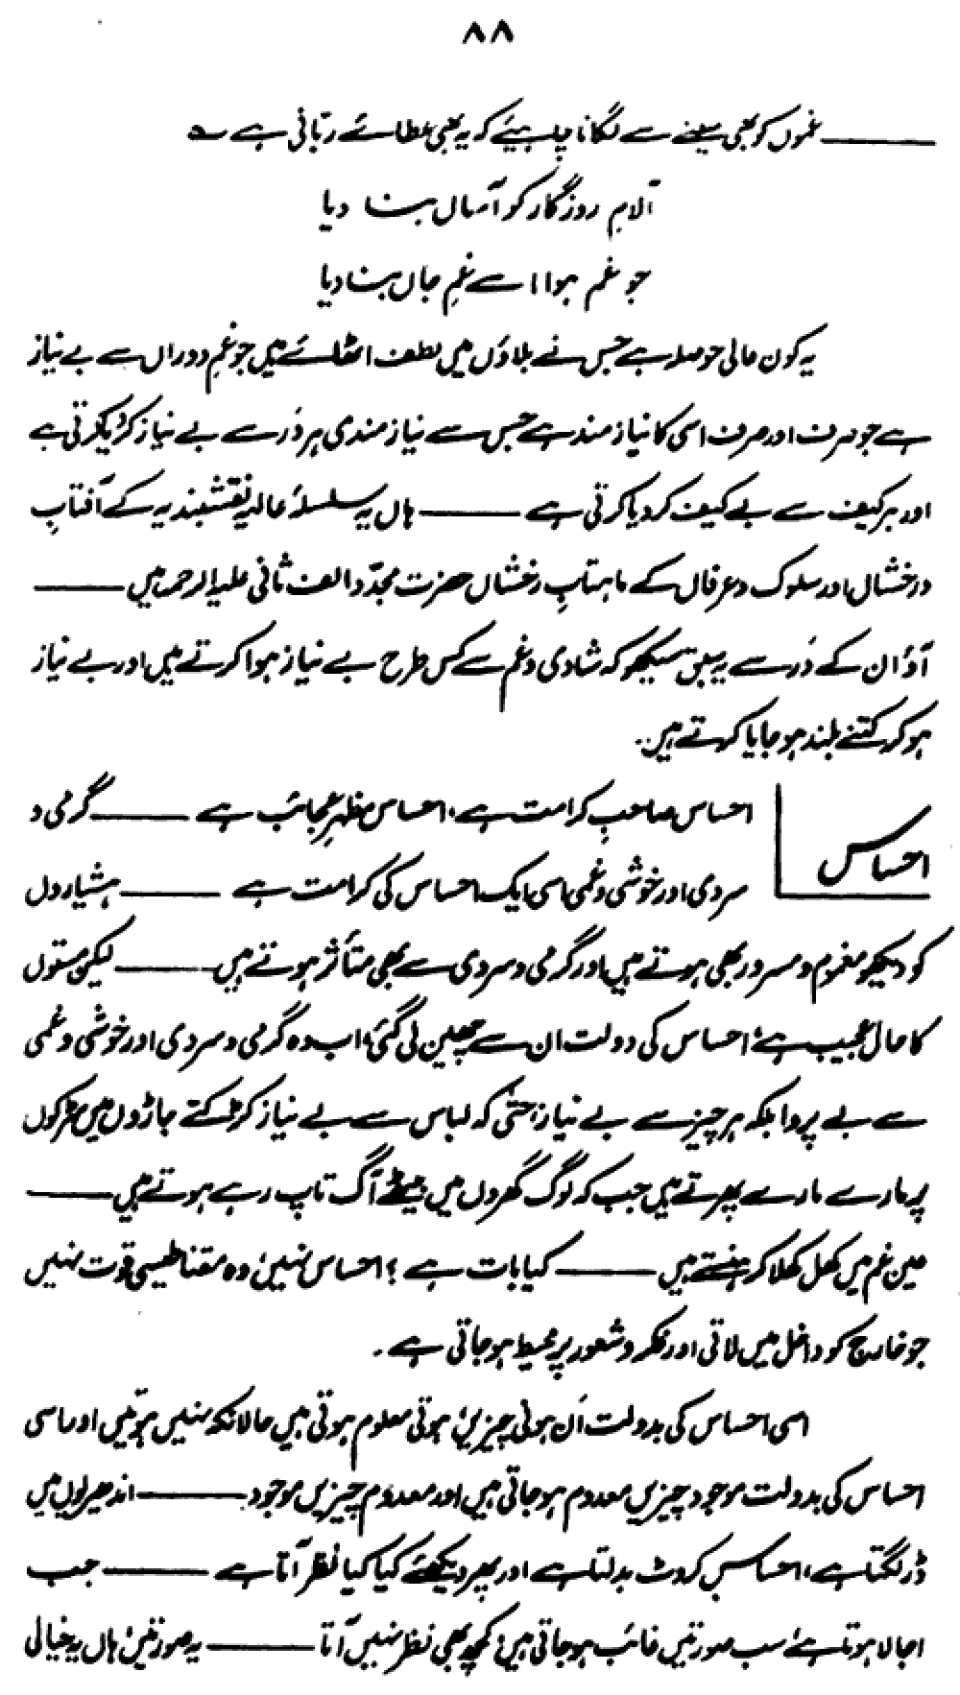 ۸۸
——— غموں کو بھی سینے سے لگانا چاہیئے کہ یہ بھی عطائے ربّانی ہے ؎
آلامِ روزگار کو آساں بنا دیا
جو غم ہوا اسے غمِ جاں بنا دیا
یہ کون عالی حوصلہ ہے جس نے بلاؤں میں لطف اٹھائے ہیں جو غمِ دوراں سے بے نیاز
ہے جو صرف اور صرف اسی کا نیاز مند ہے جس سے نیاز مندی ہر دَر سے بے نیاز کر دیا کرتی ہے
اور ہر کیف سے بے کیف کر دیا کرتی ہے ——— ہاں یہ سلسلۂ عالیہ نقشبندیہ کے آفتابِ
درخشاں اور سلوک و عرفاں کے ماہتابِ رخشاں حضرت مجدّد الف ثانی علیہ الرحمہ ہیں ———
آؤ ان کے دَر سے یہ سبق سیکھو کہ شادی و غم سے کس طرح بے نیاز ہوا کرتے ہیں اور بے نیاز
ہو کر کتنے بلند ہو جایا کرتے ہیں۔
احساس
احساس صاحبِ کرامت ہے، احساس مظہرِ عجائب ہے ——— گرمی و
سردی اور خوشی و غمی اسی ایک احساس کی کرامت ہے ——— ہشیار دل
کو دیکھو مغموم و مسرور بھی ہوتے ہیں اور گرمی و سردی سے بھی متأثر ہوتے ہیں ——— لیکن مستوں
کا حال عجیب ہے، احساس کی دولت ان سے چھین لی گئی، اب وہ گرمی و سردی اور خوشی و غمی
سے بے پروا بلکہ ہر چیز سے بے نیاز، حتّٰی کہ لباس سے بے نیاز کڑکتے جاڑوں میں سڑکوں
پر مارے مارے پھرتے ہیں جب کہ لوگ گھروں میں بیٹھے آگ تاپ رہے ہوتے ہیں ———
عین غم میں کھل کھلا کر ہنستے ہیں ——— کیا بات ہے ؟ احساس نہیں، وہ مقناطیسی قوت نہیں
جو خارج کو داخل میں لاتی اور فکر و شعور پر محیط ہو جاتی ہے۔
اسی احساس کی بدولت اَن ہونی چیزیں ہوتی معلوم ہوتی ہیں حالانکہ نہیں ہوتیں اور اسی
احساس کی بدولت موجود چیزیں معدوم ہو جاتی ہیں اور معدوم چیزیں موجود ——— اندھیریوں میں
ڈر لگتا ہے، احساس کروٹ بدلتا ہے اور پھر دیکھئے کیا کیا نظر آتا ہے ——— جب
اجالا ہوتا ہے، سب صورتیں غائب ہو جاتی ہیں، کچھ بھی نظر نہیں آتا ——— یہ صورتیں، ہاں یہ خیالی